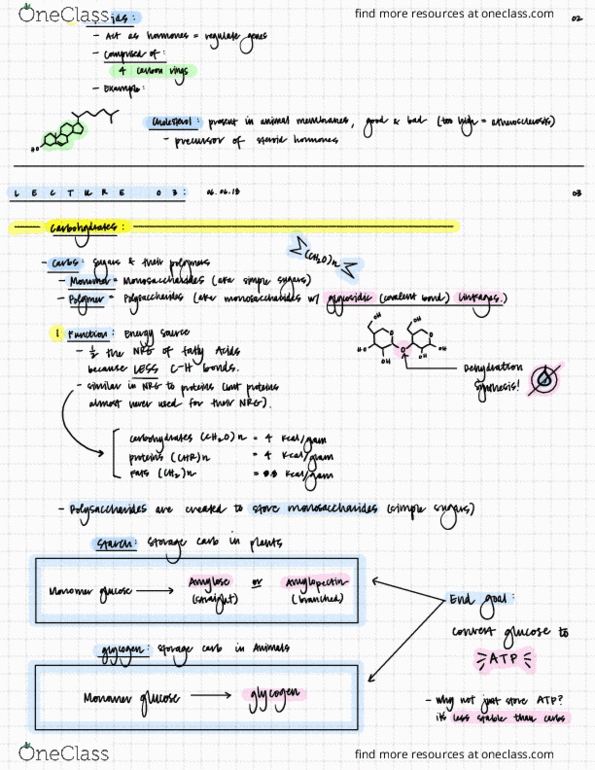 OneClass
find more resources at oneclass.com
02
- Act as hormones = regulate genes
- Comprised of:
4 carbon rings
- Example:
HO
Cholesterol: present in animal membranes, good & bad (too high = atherosclerosis)
- precursor of steroid hormones
LECTURE 03:
03
Carbohydrates:
Σ(CH2O)n Σ
- Carbs: sugars & their polymers
- Monomer = Monosaccharides (aka simple sugars)
- Polymer = Polysaccharides (aka monosaccharides w/ glycosidic (covalent bond) linkages.)
1 Function: Energy source
- 1/2 the NRG of fatty Acids
because LESS C-H bonds.
- similar in NRG to proteins (but proteins
almost never used for their NRG).
OH
OH
HO
O
OH
OH
OH
Dehydration
synthesis!
carbohydrates (CH2O)n = 4 kcal/gram
proteins (CHR)n = 4 kcal/gram
fats (CH2)n = kcal/gram
- Polysaccharides are created to store monosaccharides (simple sugars)
starch: storage carb in plants
Monomer glucose → Amylose or Amylopectin
(straight) (branched)
End goal:
convert glucose to
ATP
glycogen: storage carb in Animals
Monomer glucose → glycogen
- why not just store ATP?
its less stable than carbs
OneClass
find more resources at oneclass.com